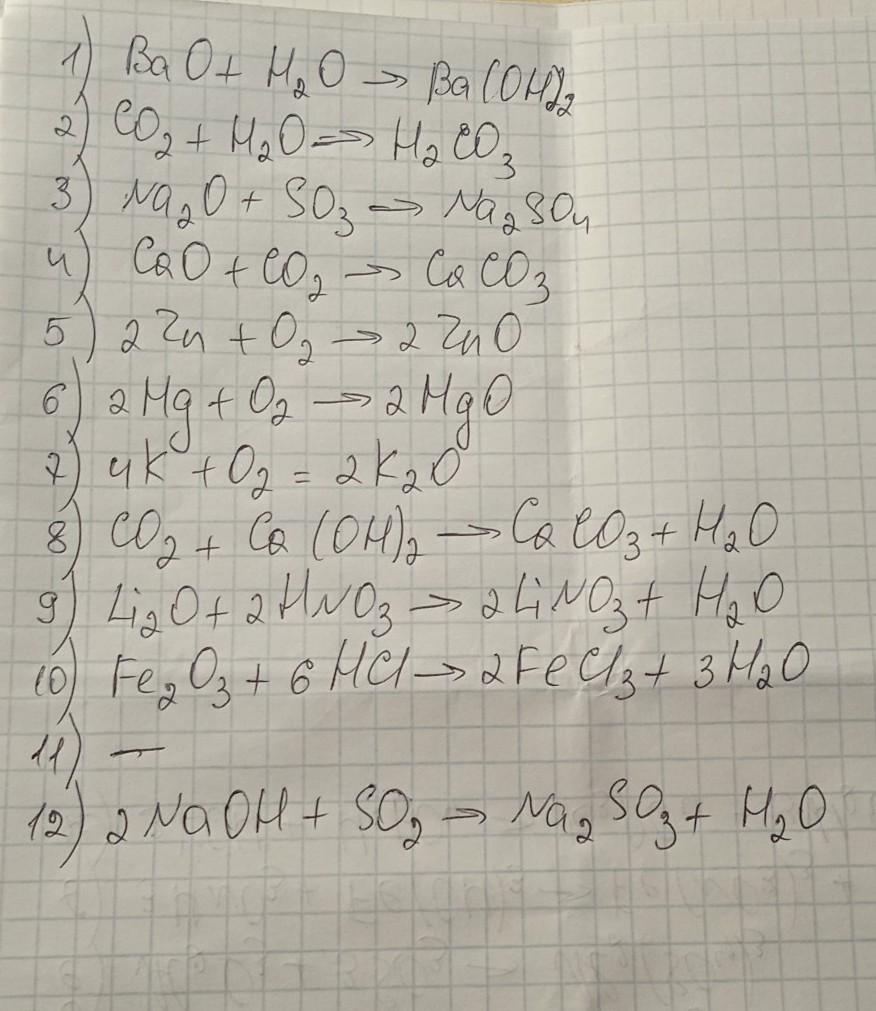 1) BaO + H₂O → Ba(OH)₂
2) CO₂ + H₂O ⇒ H₂CO₃
3) Na₂O + SO₃ → Na₂SO₄
4) CaO + CO₂ → CaCO₃
5) 2Zn + O₂ → 2ZnO
6) 2Mg + O₂ → 2MgO
7) 4K + O₂ = 2K₂O
8) CO₂ + Ca(OH)₂ → CaCO₃ + H₂O
9) Li₂O + 2HNO₃ → 2LiNO₃ + H₂O
10) Fe₂O₃ + 6HCl → 2FeCl₃ + 3H₂O
11) —
12) 2NaOH + SO₂ → Na₂SO₃ + H₂O